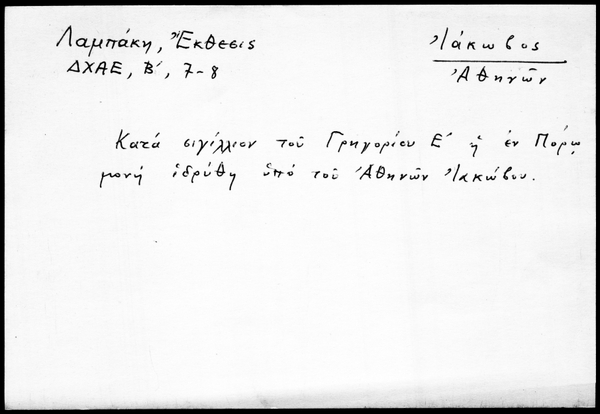 Λαμπάκη, Ἔκθεσις
ΔΧΑΕ, Β΄, 7-8
Ἰάκωβος
Ἀθηνῶν
Κατά σιγίλλιον τοῦ Γρηγορίου Ε΄ ἡ ἐν Πόρῳ
μονή ἱδρύθη ὑπό τοῦ Ἀθηνῶν Ἰακώβου.